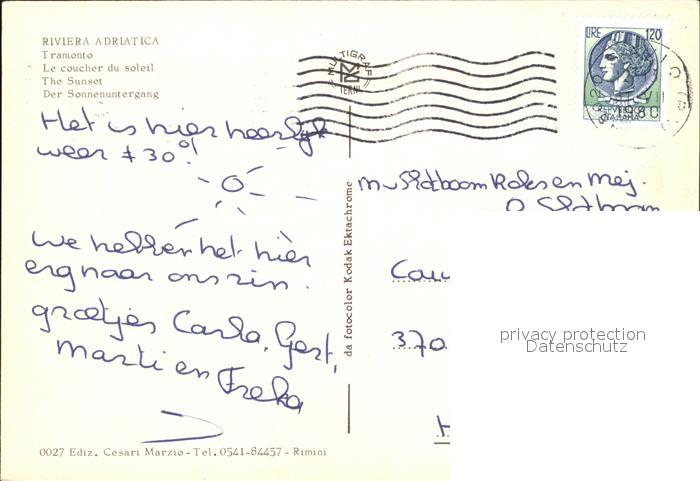 RIVIERA ADRIATICA
Tramonto
Le coucher du soleil
The Sunset
Der Sonnenuntergang
Het is hier heerlijk
weer ± 30°!
we hebben het hier
erg naar ons zin.
groetjes Carla, Gert,
Marti en Freka
0027 Ediz. Cesari Marzio - Tel. 0541-84457 - Rimini
da fotocolor Kodak Ektachrome
MULTIGRAF
TERNI
LIRE 120
1980
en Mej.
370
privacy protection
Datenschutz